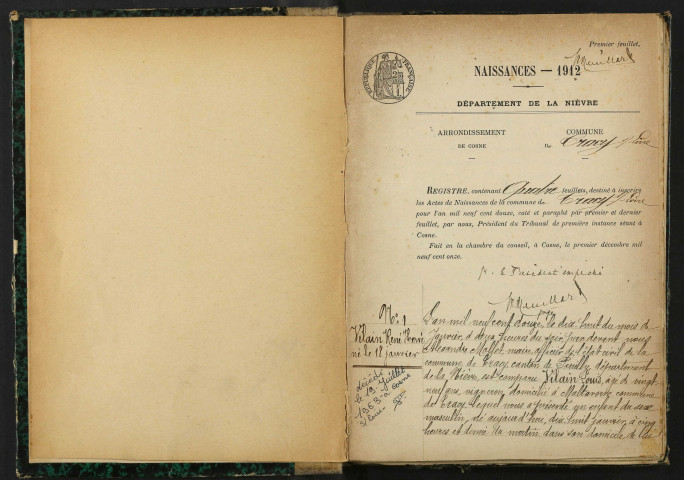 Premier feuillet,
NAISSANCES — 1912
DÉPARTEMENT DE LA NIÈVRE
ARRONDISSEMENT
DE COSNE
COMMUNE
de Tracy s/Loire
REGISTRE, contenant Quatre feuillets, destiné à inscrire
les Actes de Naissances de la commune de Tracy s/Loire
pour l'an mil neuf cent douze, coté et paraphé par premier et dernier
feuillet, par nous, Président du Tribunal de première instance séant à
Cosne.
Fait en la chambre du conseil, à Cosne, le premier décembre mil
neuf cent onze.
p. le Président empêché
N° 1
Vilain René
né le 18 janvier
décédé
le 19 juillet
1963 à Cosne
s/Loire
L'an mil neuf cent douze, le dix-huit du mois de
Janvier, à deux heures du soir, par devant nous
Alexandre maire, officier de l'état civil de la
commune de Tracy, canton de Pouilly, département
de la Nièvre, est comparu Vilain Louis, âgé de vingt
neuf ans, vigneron, domicilié à commune
de Tracy, lequel nous a présenté un enfant du sexe
masculin, né aujourd'hui, dix-huit janvier, à cinq
heures et demie du matin, dans son domicile